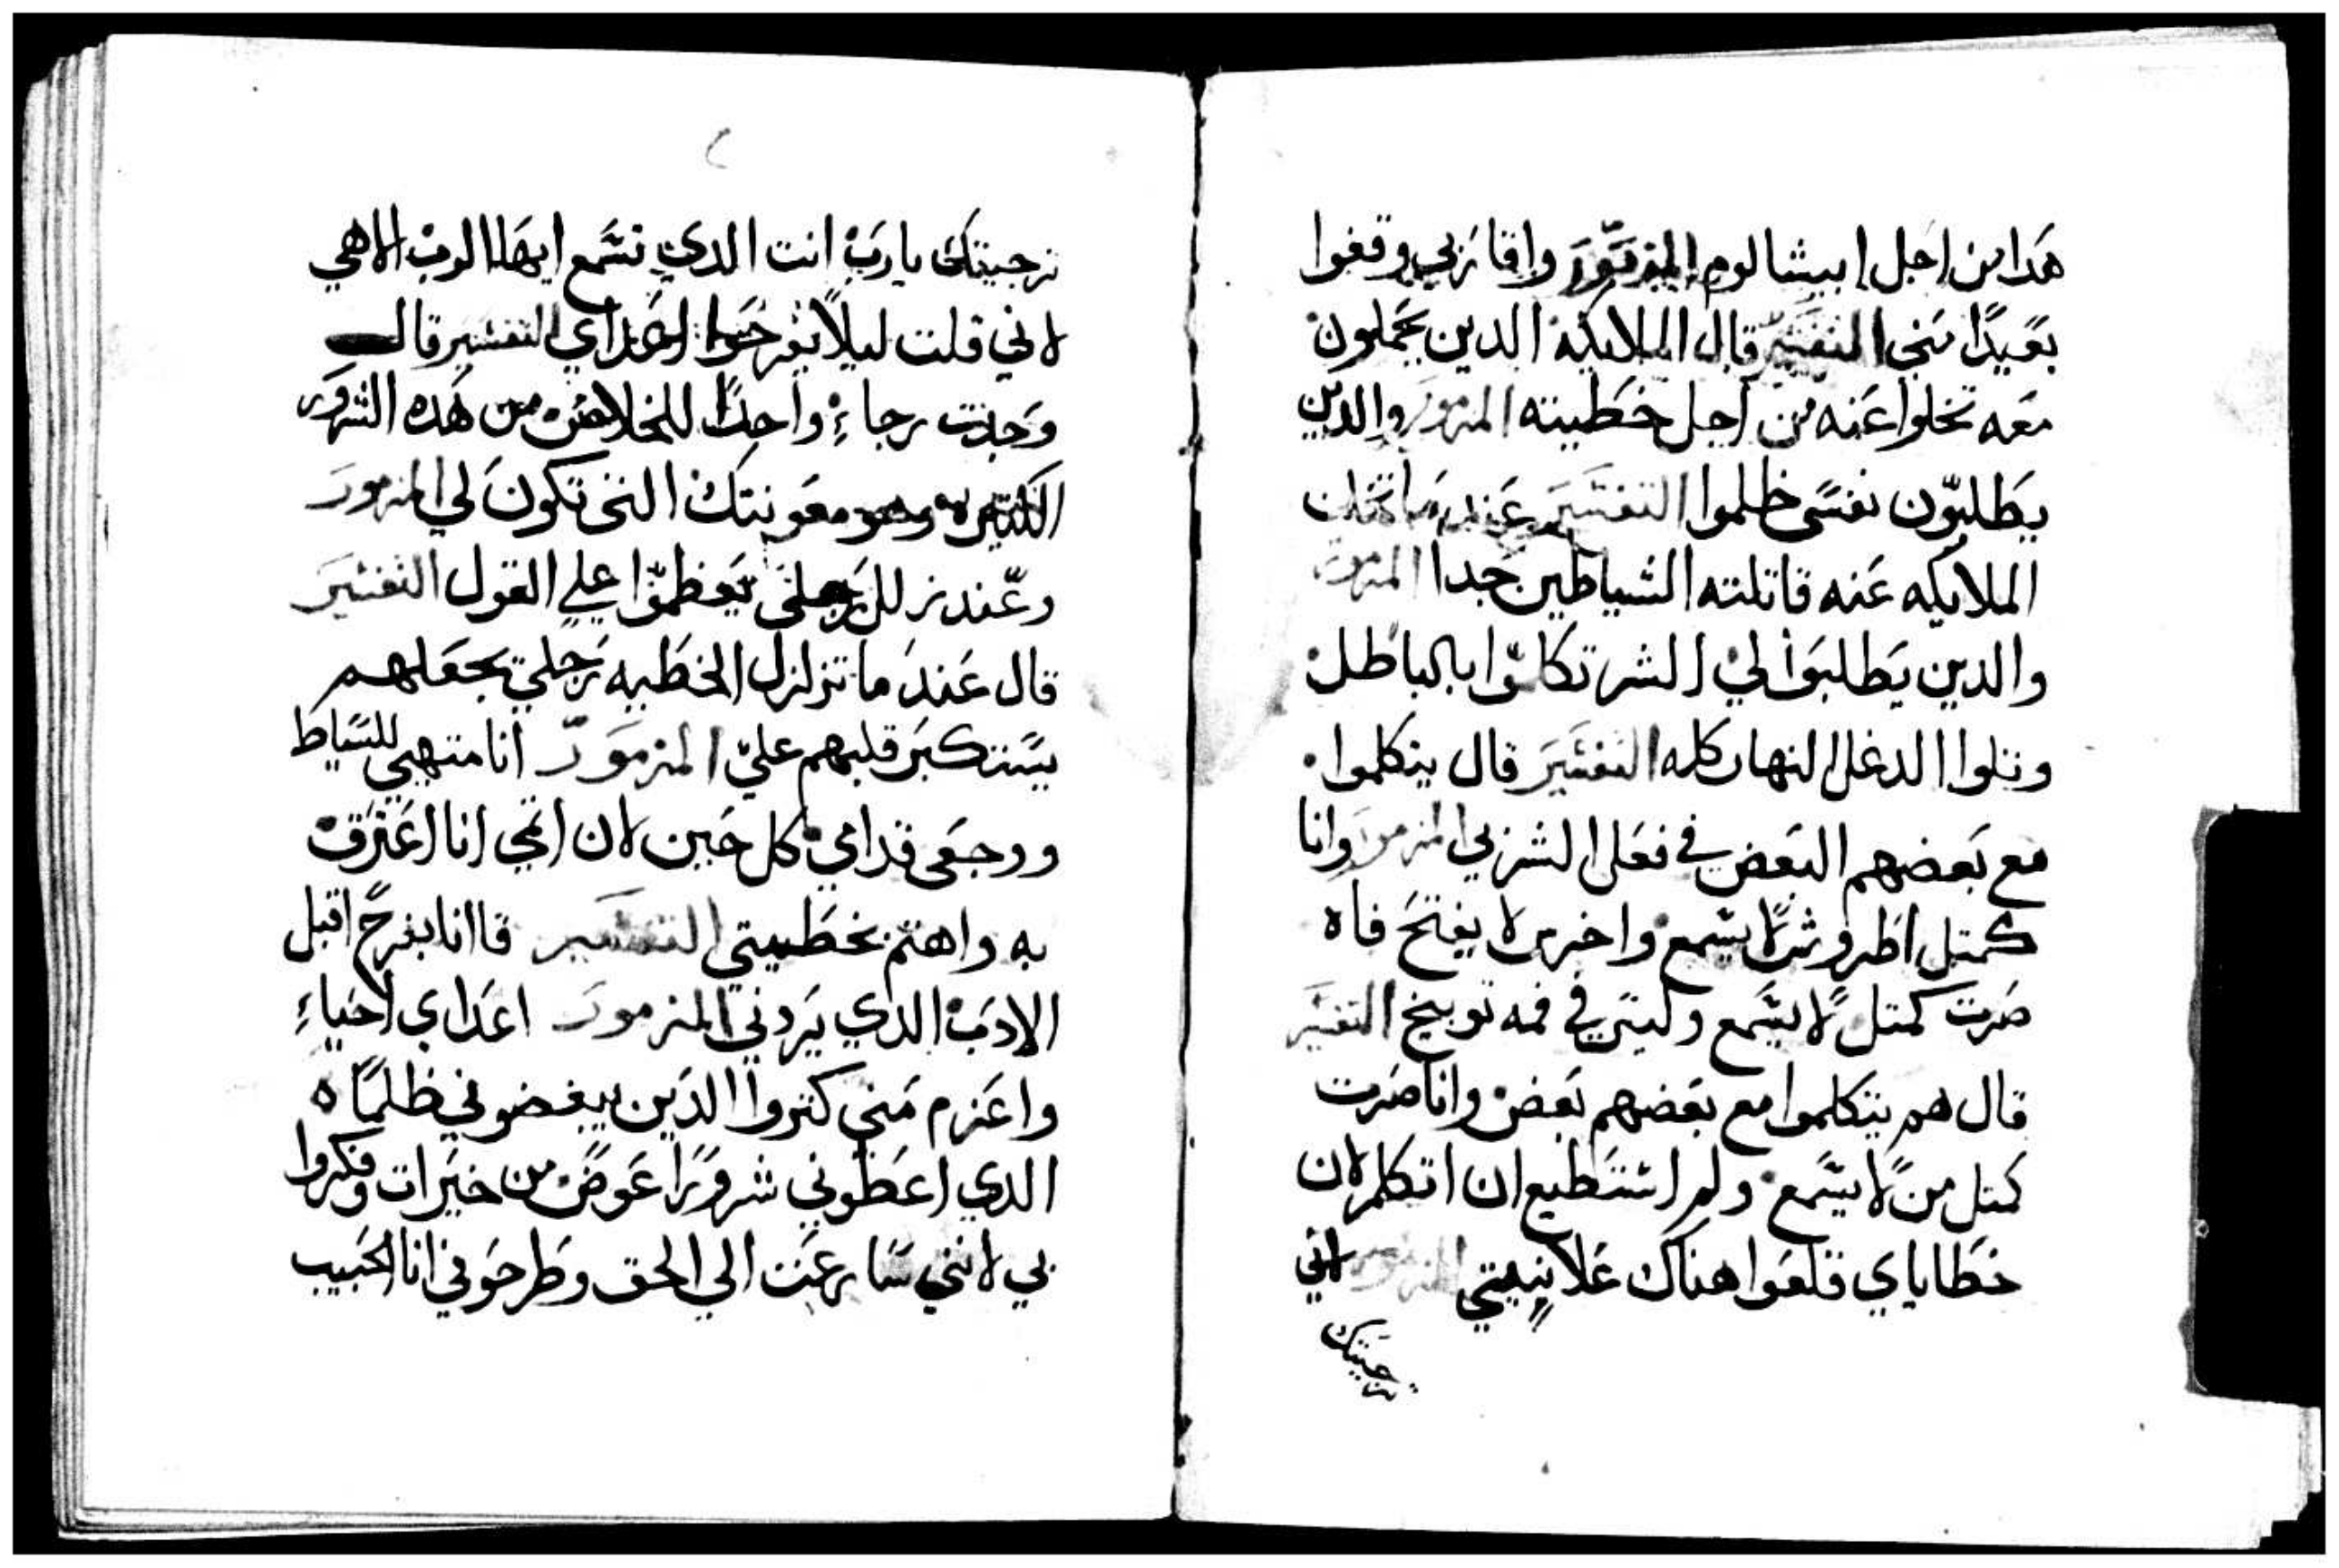 هدا من اجل ابيشالوم المزمور واقاربي وقفوا
بعيدًا مني التفسير قال الملايكه الدين يحملون
معه تخلوا عنه من اجل خطيته المزمور والدين
يطلبون نفسي ظلموا التفسير عند ما تخلت
الملايكه عنه قاتلته الشياطين جدا المزمور
والدين يطلبوا لي الشر تكلموا بالباطل
وتلوا الدغل النهار كله التفسير قال يتكلموا
مع بعضهم البعض في فعل الشر بي المزمور وانا
كمتل اطروش لا يسمع واخرس لا يفتح فاه
صرت كمتل لا يسمع وليس في فمه توبيخ التفسير
قال هم يتكلموا مع بعضهم بعض وانا صرت
كمتل من لا يسمع ولم استطيع ان اتكلم لان
خطاياي قلعوا هناك علانيتي المزمور لاني
ترجيتك
ترجيتك يا رب انت الدي تسمع ايها الرب الاهي
لاني قلت ليلا يفرحوا اعداي التفسير قال
وجدت رجاء واحدًا للخلاص من هده الشرور
الكتيره وهو معونتك التي تكون لي المزمور
وعند زلل رجلي تعظموا علي القول التفسير
قال عند ما تزلزل الخطيه رجلي تجعلهم
يستكبر قلبهم علي المزمور انا متهيي للسياط
ووجعي قدامي كل حين لان اتمي انا اعترف
به واهتم بخطيتي التفسير قا انا بفرح اقبل
الادب الدي يردني المزمور اعداي احياء
واعزم مني كتروا الدين يبغضوني ظلمًا ه
الدي اعطوني شرورًا عوض من خيرات وفكروا
بي لانني سارعت الي الحق وطرحوني انا الحبيب